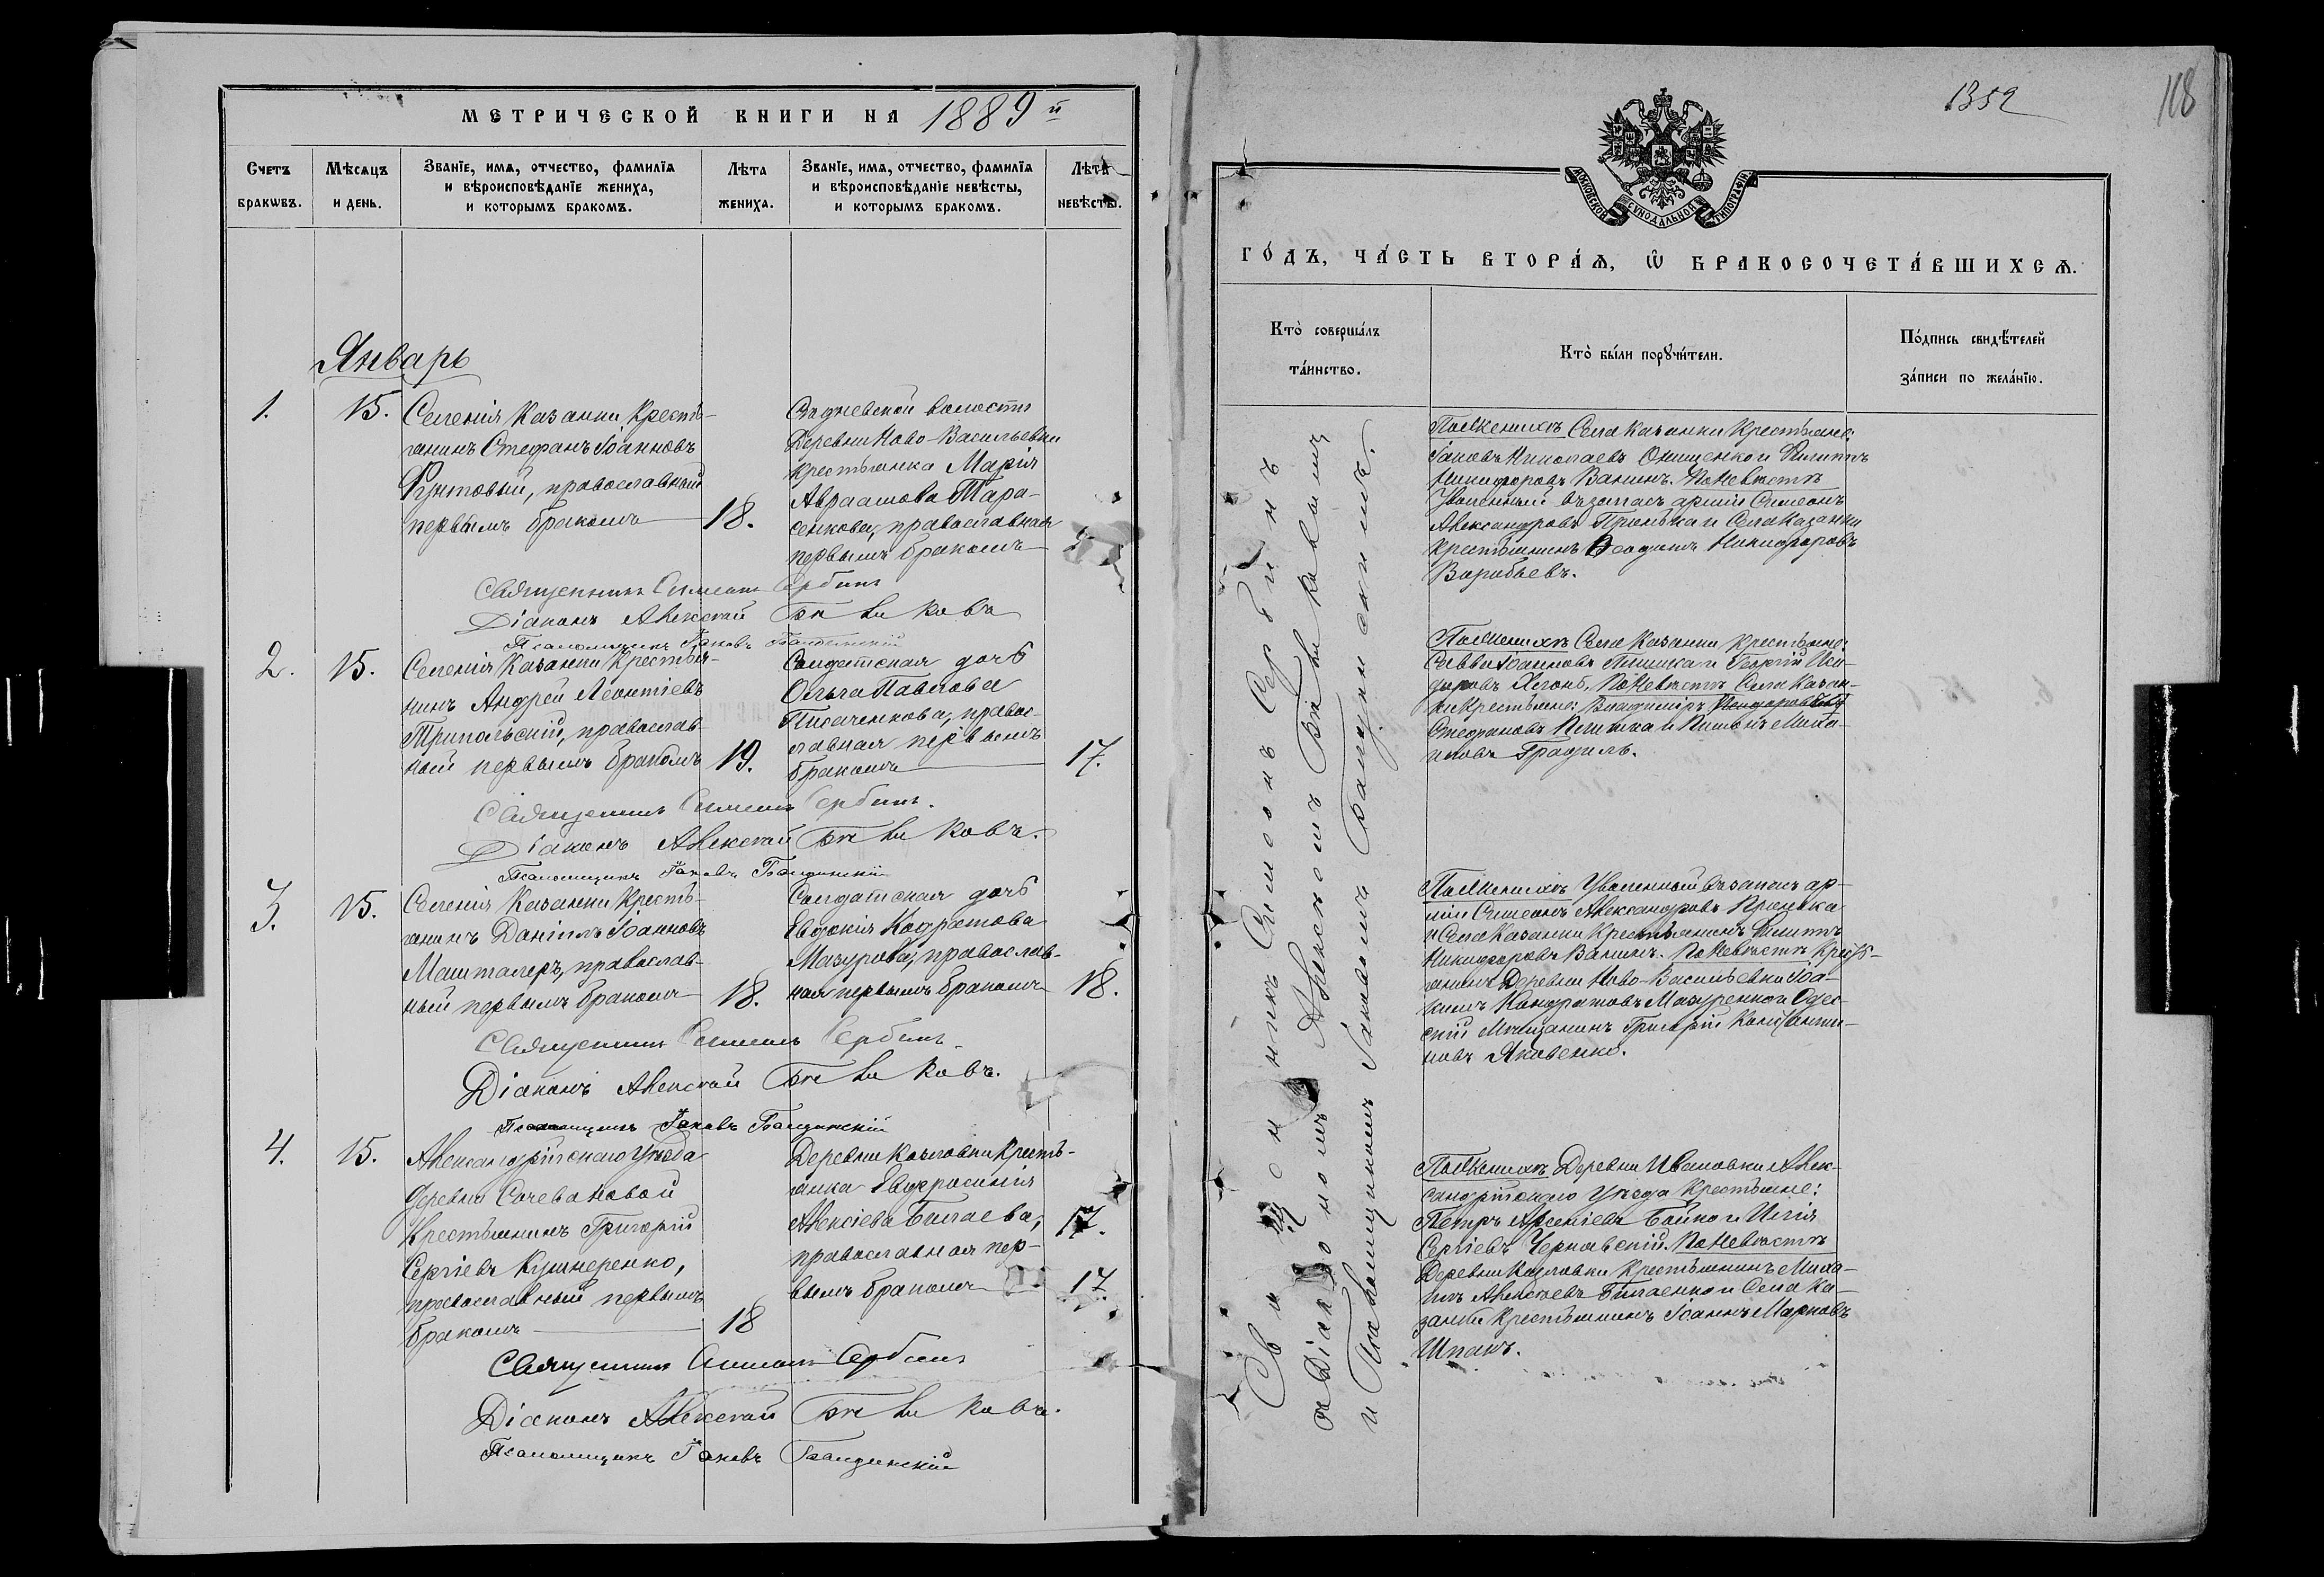 МЕТРИЧЕСКОЙ КНИГИ НА 1889й
Счетъ браковъ.
Мѣсяцъ и день.
Званіе, имя, отчество, фамилія
и вѣроисповѣданіе жениха,
и которымъ бракомъ.
Лѣта жениха.
Званіе, имя, отчество, фамилія
и вѣроисповѣданіе невѣсты,
и которымъ бракомъ.
Лѣта невѣсты.
Январь
1.
15.
Селенія Казанки Кресть-
янинъ Стефанъ Іоанновъ
православный
первымъ бракомъ
18.
волости
Деревни Ново-Васильевки
крестьянка Марія
Авраамова Тара-
сенкова, православная
первымъ бракомъ
Священникъ Симеонъ Сербинъ
Діаконъ Алексѣй
Псаломщикъ Іаковъ
2.
15.
Селенія Казанки Крестья-
нинъ Андрей Леонтіевъ
Трипольскій, православ-
ный первымъ бракомъ
19.
Солдатская дочь
Ольга Павлова
Писаченкова, правос-
лавная первымъ
бракомъ
17.
Священникъ Симеонъ Сербинъ.
Діаконъ Алексѣй
Псаломщикъ Іаковъ
3.
15.
Селенія Казанки Кресть-
янинъ Даніилъ Іоанновъ
Машталеръ, православ-
ный первымъ бракомъ
18.
Солдатская дочь
Евдокія Кодратова
Мазурова, православ-
ная первымъ бракомъ
18.
Священникъ Симеонъ Сербинъ
Діаконъ Алексѣй
Псаломщикъ Іаковъ
4.
15.
Александрійскаго Уѣзда
деревни
Крестьянинъ Григорій
Сергіевъ Кушнеренко,
православный первымъ
бракомъ
18
Деревни Козловки Кресть-
янка Евфросинія
Алексіева Билаева,
православная пер-
вымъ бракомъ
17.
17.
Священникъ Симеонъ Сербинъ
Діаконъ Алексѣй
Псаломщикъ Іаковъ
1352
118
МОСКОВСКОЙ СѴНОДАЛЬНОЙ ТИПОГРАФІИ
ГО́ДЪ, ЧА́СТЬ ВТОРА́Я, Ѿ БРАКОСОЧЕТА́ВШИХСЯ.
Кто̀ соверша́лъ
та́инство.
Кто̀ бы́ли порꙋчи́тели.
По́дпись свидѣ́телей
за́писи по жела́нію.
Священникъ Симеонъ Сербинъ
съ Діакономъ Алексѣемъ
и Псаломщикомъ Іаковомъ
По женихѣ Села Казанки Крестьяне:
Іаковъ Николаевъ Онищенко и Филиппъ
Никифоровъ Ванинъ. По невѣстѣ
Уволенный въ запасъ арміи Симеонъ
Александровъ Пронька и Села Казанки
Крестьянинъ Никифоровъ
Воробьевъ.
По женихѣ Села Казанки Крестьяне:
Савва Іоанновъ и Георгій Иси-
доровъ По невѣстѣ Села Казан-
ки Крестьяне: Владиміръ
Стефановъ
Градиль.
По женихѣ Уволенный въ запасъ ар-
міи Симеонъ Александровъ Пронька
и Села Казанки Крестьянинъ Филиппъ
Никифоровъ Ванинъ. По невѣстѣ Крест-
янинъ Деревни Ново-Васильевки Іоа-
кимъ Кондратовъ Мазуренко и Одес-
скій Мѣщанинъ Григорій Константи-
новъ Яковенко.
По женихѣ Деревни Ивановки Алек-
сандрійскаго Уѣзда Крестьяне:
Петръ Арсеніевъ Бойко и Илія
Сергіевъ Чернявскій. По невѣстѣ
Деревни Козловки Крестьянинъ Миха-
илъ Алексѣевъ Билаенко и Села Ка-
занки Крестьянинъ Іоаннъ Марковъ
Шпакъ.